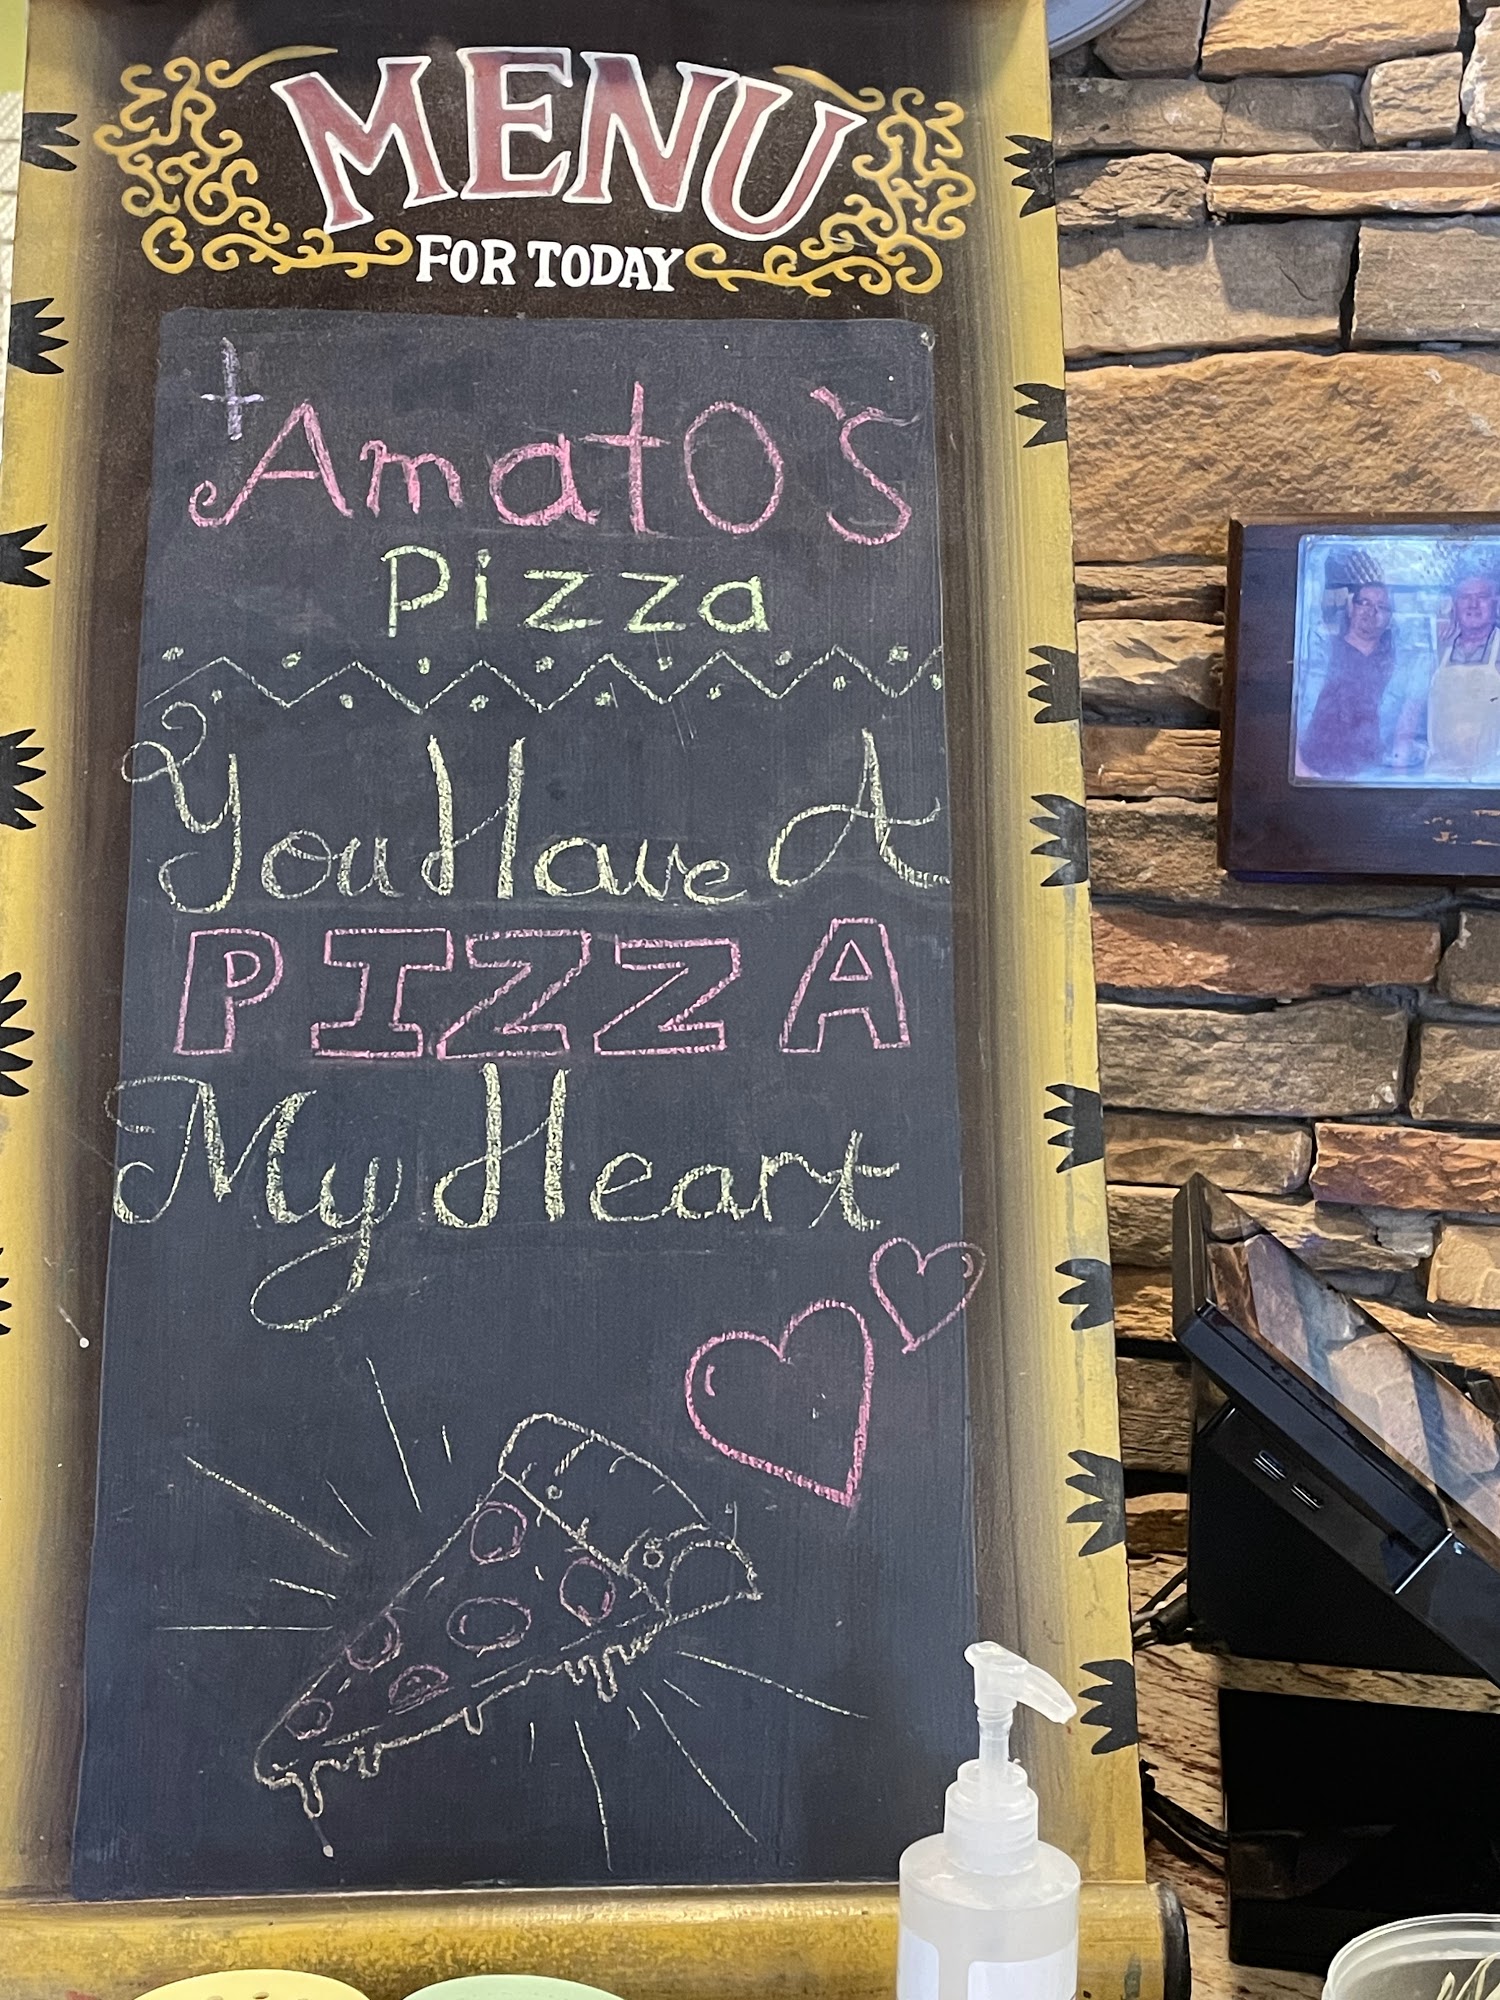 MENU
FOR TODAY
AmatO's
Pizza
You Have A
PIZZA
My Heart